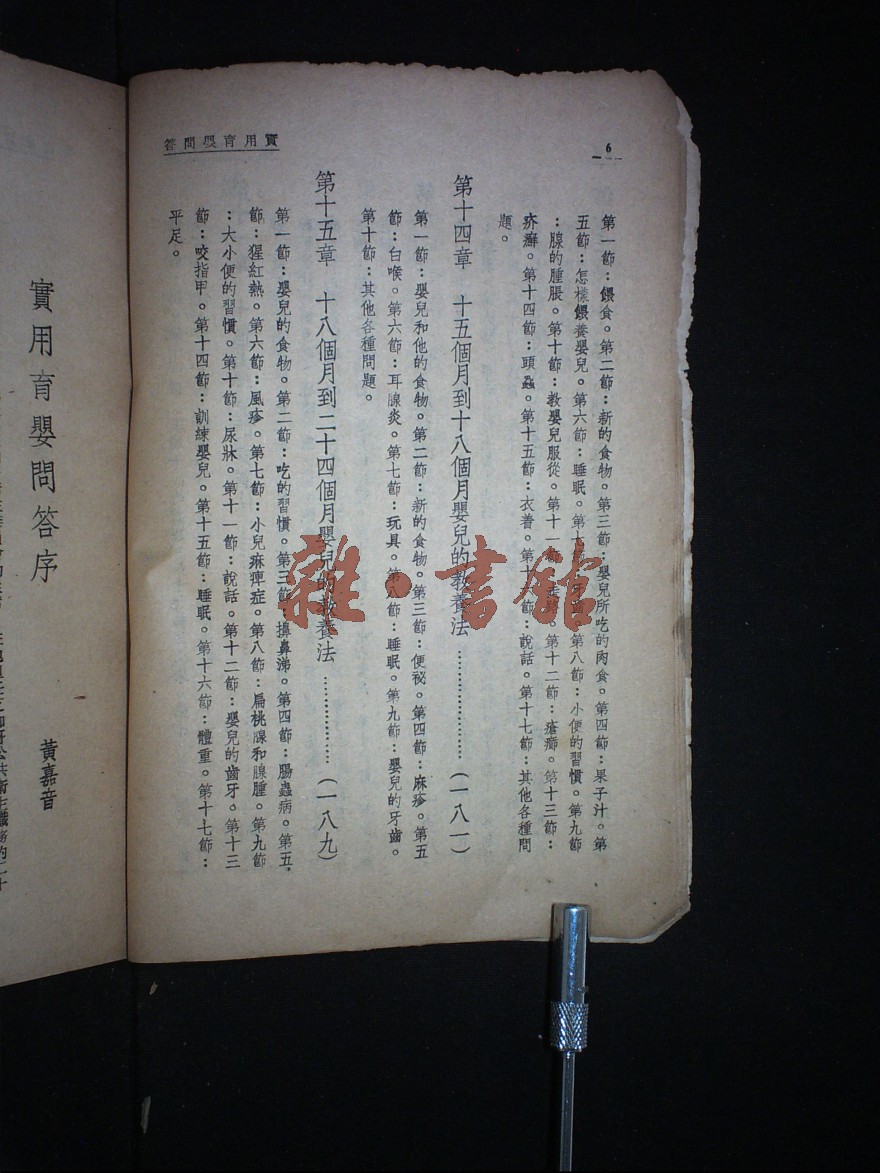 6
實用育嬰問答
第一節：餵食。第二節：新的食物。第三節：嬰兒所吃的肉食。第四節：果子汁。第
五節：怎樣餵養嬰兒。第六節：睡眠。第七節：牙齒。第八節：小便的習慣。第九節
：腺的腫脹。第十節：教嬰兒服從。第十一節：第十二節：瘡癤。第十三節：
疥癬。第十四節：頭蝨。第十五節：衣着。第十六節：說話。第十七節：其他各種問
題。
第十四章　十五個月到十八個月嬰兒的教養法…………………（一八一）
第一節：嬰兒和他的食物。第二節：新的食物。第三節：便祕。第四節：麻疹。第五
節：白喉。第六節：耳腺炎。第七節：玩具。第八節：睡眠。第九節：嬰兒的牙齒。
第十節：其他各種問題。
第十五章　十八個月到二十四個月嬰兒的教養法…………………（一八九）
第一節：嬰兒的食物。第二節：吃的習慣。第三節：擤鼻涕。第四節：腸蟲病。第五
節：猩紅熱。第六節：風疹。第七節：小兒麻痺症。第八節：扁桃腺和腺腫。第九節
：大小便的習慣。第十節：尿牀。第十一節：說話。第十二節：嬰兒的齒牙。第十三
節：咬指甲。第十四節：訓練嬰兒。第十五節：睡眠。第十六節：體重。第十七節：
平足。
實用育嬰問答序
黃嘉音
雜·書館